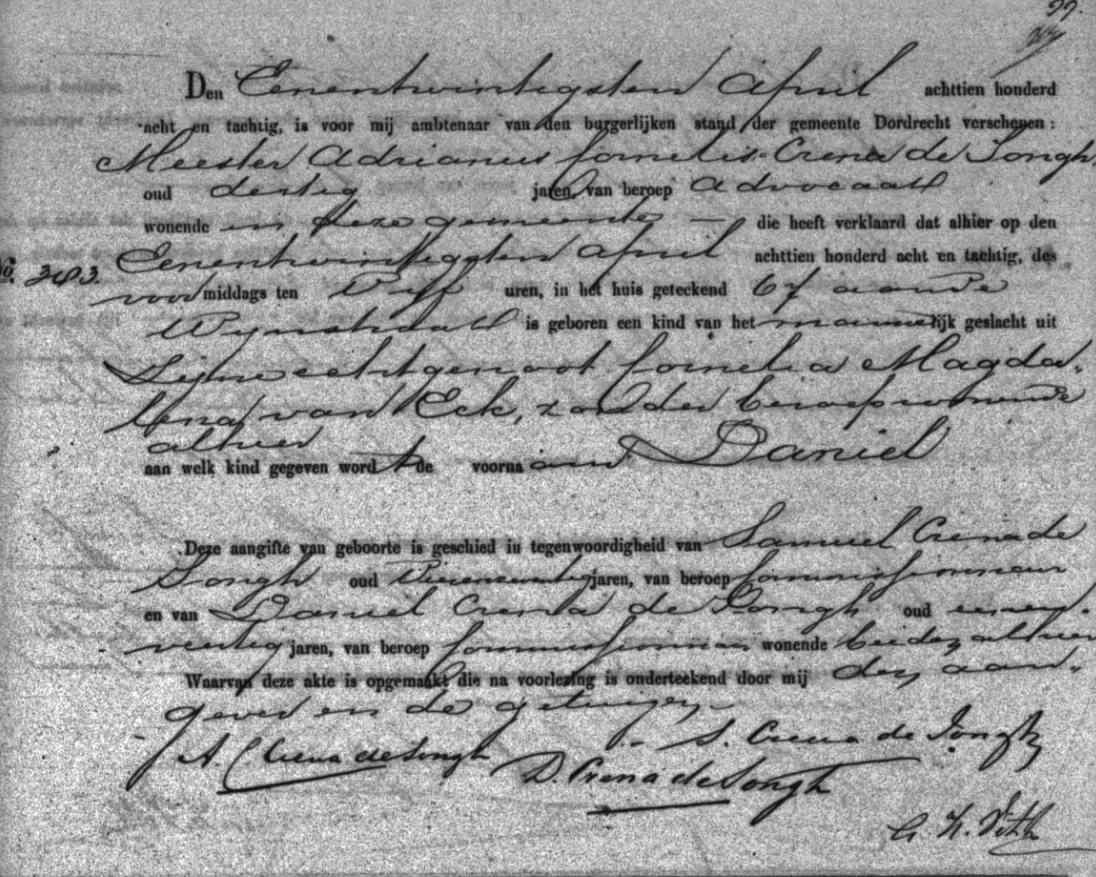 99.
Den Eenentwintigsten April achttien honderd
acht en tachtig, is voor mij ambtenaar van den burgerlijken stand der gemeente Dordrecht verschenen:
Meester Adrianus Cornelis Crena de Iongh,
oud dertig jaren, van beroep advocaat
wonende in deze gemeente — die heeft verklaard dat alhier op den
Eenentwintigsten April achttien honderd acht en tachtig, des
No. 343. voormiddags ten Vijf uren, in het huis geteekend 67 aan de
Wijnstraat is geboren een kind van het mannelijk geslacht uit
Zijne echtgenoot Cornelia Magda-
lena van Eck, zonder beroep wonende
alhier
aan welk kind gegeven word t de voornaam Daniel
Deze aangifte van geboorte is geschied in tegenwoordigheid van Samuel Crena de
Iongh oud jaren, van beroep Commissionnair
en van Daniel Crena de Iongh oud eenen-
veertig jaren, van beroep Commissionnair wonende beiden alhier
Waarvan deze akte is opgemaakt die na voorlezing is onderteekend door mij den aan-
gever en de getuigen.
A. C. Crena de Iongh S. Crena de Iongh
D. Crena de Iongh